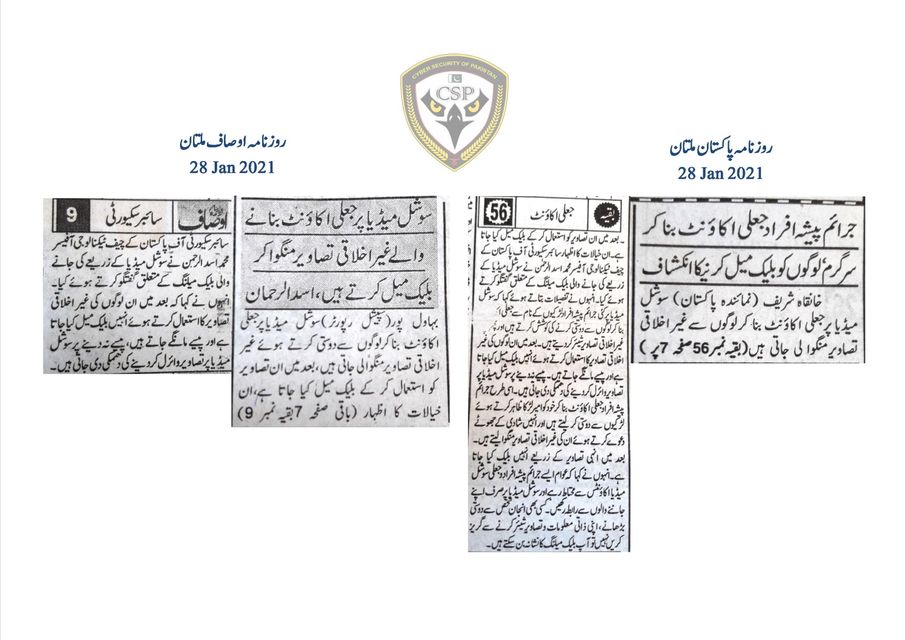 CYBER SECURITY OF PAKISTAN
CSP
روزنامہ اوصاف ملتان
28 Jan 2021
روزنامہ پاکستان ملتان
28 Jan 2021
جرائم پیشہ افراد جعلی اکاؤنٹ بنا کر
سرگرم‘ لوگوں کو بلیک میل کرنیکا انکشاف
خانقاہ شریف (نمائندہ پاکستان) سوشل
میڈیا پر جعلی اکاؤنٹ بنا کر لوگوں سے غیر اخلاقی
تصاویر منگوا لی جاتی ہیں (بقیہ نمبر 56 صفحہ 7 پر)
بقیہ جعلی اکاؤنٹ 56
۔ بعد میں ان تصاویر کو استعمال کر کے بلیک میل کیا جاتا
ہے۔ ان خیالات کا اظہار سائبر سکیورٹی آف پاکستان کے
چیف ٹیکنالوجی آفیسر محمد اسد الرحمن نے سوشل میڈیا کے
زریعے کی جانے والی بلیک میلنگ کے متعلق گفتگو کرتے
ہوئے کیا۔ انہوں نے تفصیلات بتاتے ہوئے کہا کہ سوشل
میڈیا پر کئی جرائم پیشہ افراد لڑکیوں کے نام سے جعلی اکاؤنٹ
بنا کر لوگوں سے دوستی کرنے کی کوشش کرتے ہیں اور
غیر اخلاقی تصاویر شیئر کرتے ہیں۔ بعد میں ان لوگوں کی غیر
اخلاقی تصاویر کا استعمال کرتے ہوئے انہیں بلیک میل کیا جاتا
ہے اور پیسے مانگے جاتے ہیں۔ پیسے نہ دینے پر سوشل میڈیا پر
تصاویر وائرل کر دینے کی دھمکی دی جاتی ہیں۔ اسی طرح جرائم
پیشہ افراد جعلی اکاؤنٹ بنا کر خود کو امیر لڑکا ظاہر کرتے ہوئے
لڑکیوں سے دوستی کر لیتے ہیں اور انہیں شادی کے جھوٹے
دعوے کرتے ہوئے ان کی غیر اخلاقی تصاویر منگوا لیتے ہیں۔
بعد میں انہی تصاویر کے زریعے انہیں بلیک کیا جاتا
ہے۔ انہوں نے کہا کہ عوام ایسے جرائم پیشہ افراد و جعلی سوشل
میڈیا اکاؤنٹس سے محتاط رہے اور سوشل میڈیا پر صرف اپنے
جاننے والوں سے رابطہ رکھیں۔ کسی بھی انجان شخص سے دوستی
بڑھانے، اپنی ذاتی معلومات و تصاویر شیئر کرنے سے گریز
کریں نہیں تو آپ بلیک میلنگ کا نشانہ بن سکتے ہیں۔
سوشل میڈیا پر جعلی اکاؤنٹ بنانے
والے غیر اخلاقی تصاویر منگوا کر
بلیک میل کرتے ہیں، اسد الرحمان
بہاول پور (سپیشل رپورٹر) سوشل میڈیا پر جعلی
اکاؤنٹ بنا کر لوگوں سے دوستی کرتے ہوئے غیر
اخلاقی تصاویر منگوا لی جاتی ہیں، بعد میں ان تصاویر
کو استعمال کر کے بلیک میل کیا جاتا ہے، ان
خیالات کا اظہار (باقی صفحہ 7 بقیہ نمبر 9)
اوصاف سائبر سکیورٹی 9
سائبر سکیورٹی آف پاکستان کے چیف ٹیکنالوجی آفیسر
محمد اسد الرحمن نے سوشل میڈیا کے زریعے کی جانے
والی بلیک میلنگ کے متعلق گفتگو کرتے ہوئے کیا۔
انہوں نے کہا کہ بعد میں ان لوگوں کی غیر اخلاقی
تصاویر کا استعمال کرتے ہوئے انہیں بلیک میل کیا جاتا
ہے اور پیسے مانگے جاتے ہیں۔ پیسے نہ دینے پر سوشل
میڈیا پر تصاویر وائرل کر دینے کی دھمکی دی جاتی ہیں۔